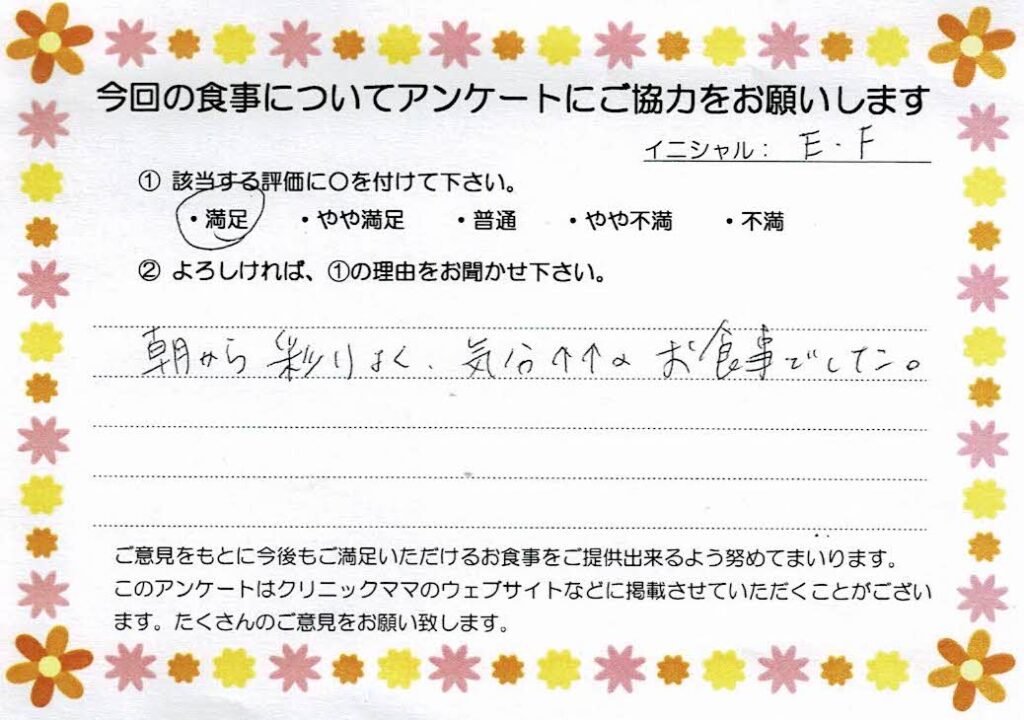 今回の食事についてアンケートにご協力をお願いします
イニシャル： E・F
① 該当する評価に〇を付けて下さい。
・満足 ・やや満足 ・普通 ・やや不満 ・不満
② よろしければ、①の理由をお聞かせ下さい。
朝から彩りよく、気分↑↑のお食事でした。
ご意見をもとに今後もご満足いただけるお食事をご提供出来るよう努めてまいります。
このアンケートはクリニックママのウェブサイトなどに掲載させていただくことがござい
ます。たくさんのご意見をお願い致します。